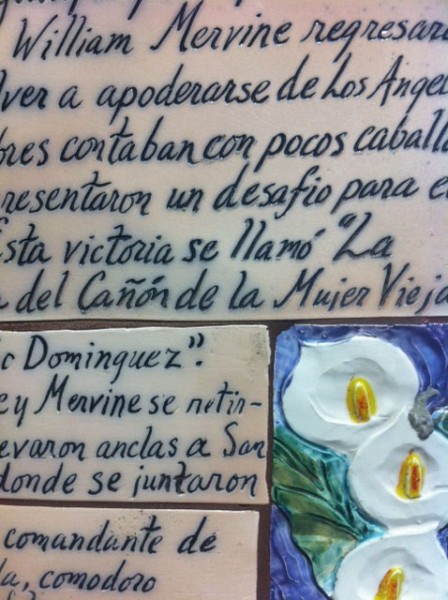 William Mervine regresar
lver a apoderarse de Los Angel
bres contaban con pocos caball
resentaron un desafío para e
Esta victoria se llamó "La
del Cañón de la Mujer Vieja
c Dominguez".
ey Mervine se retir-
evaron anclas a San
donde se juntaron
comandante de
da, comodoro